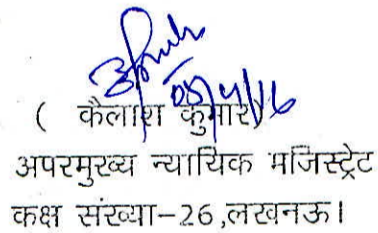 05/4/16
( कैलाश कुमार)
अपरमुख्य न्यायिक मजिस्ट्रेट
कक्ष संख्या-26,लखनऊ।